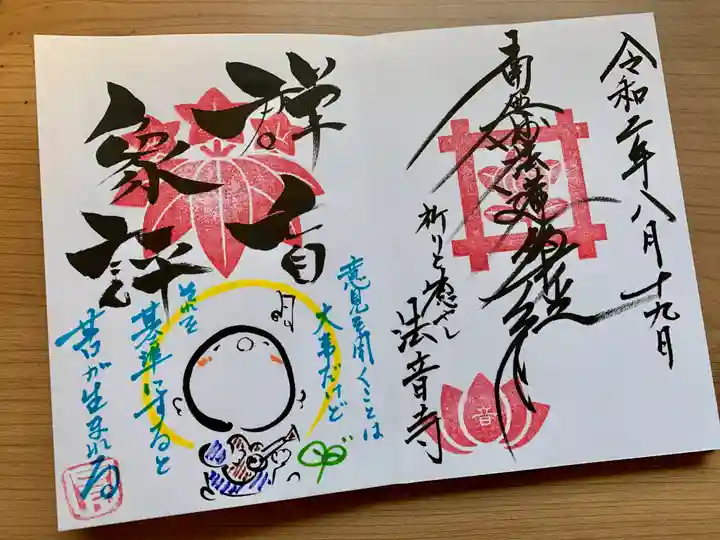 令和二年八月十九日
南無妙法蓮華経
祈りと癒やし
法音寺
音
群盲
象評
意見を聞くことは
大事だけど
それを
基準にすると
苦が生まれる